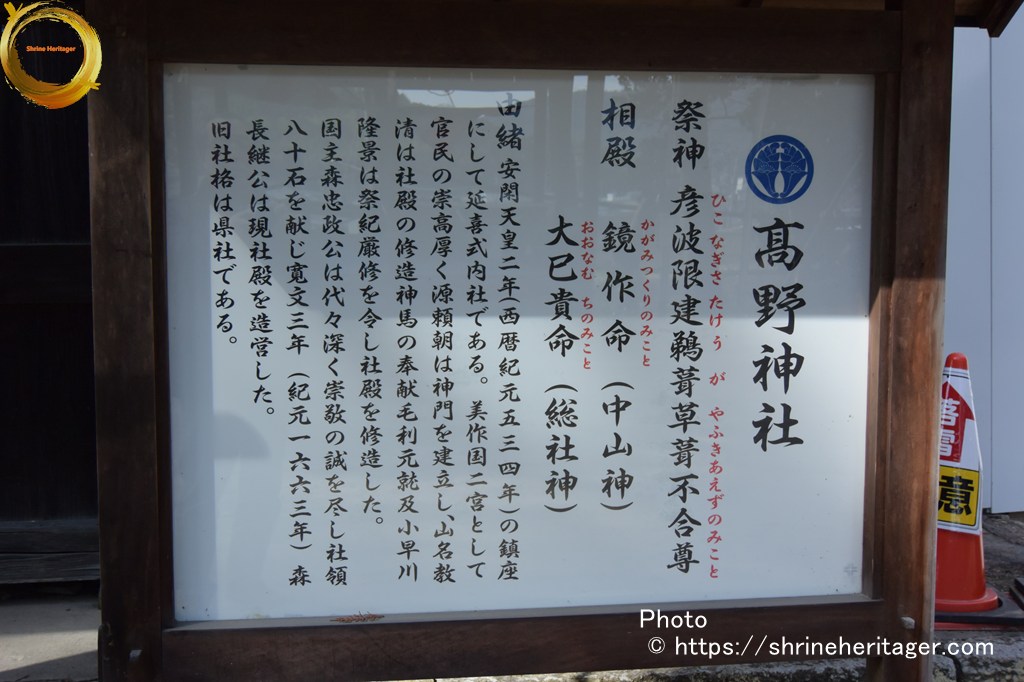 Shrine Heritager
髙野神社
祭神 彦波限建鵜葺草葺不合尊
ひこ なぎさ たけう が やふきあえずのみこと
相殿 鏡作命(中山神)
かがみつくりのみこと
大已貴命(総社神)
おおなむ ちのみこと
由緒 安閑天皇二年(西暦紀元五三四年)の鎮座
にして延喜式内社である。美作国二宮として
官民の崇高厚く源頼朝は神門を建立し、山名教
清は社殿の修造神馬の奉献毛利元就及小早川
隆景は祭紀厳修を令し社殿を修造した。
国主森忠政公は代々深く崇敬の誠を尽し社領
八十石を献じ寛文三年(紀元一六六三年)森
長継公は現社殿を造営した。
旧社格は県社である。
落雪
意
Photo
© https://shrineheritager.com